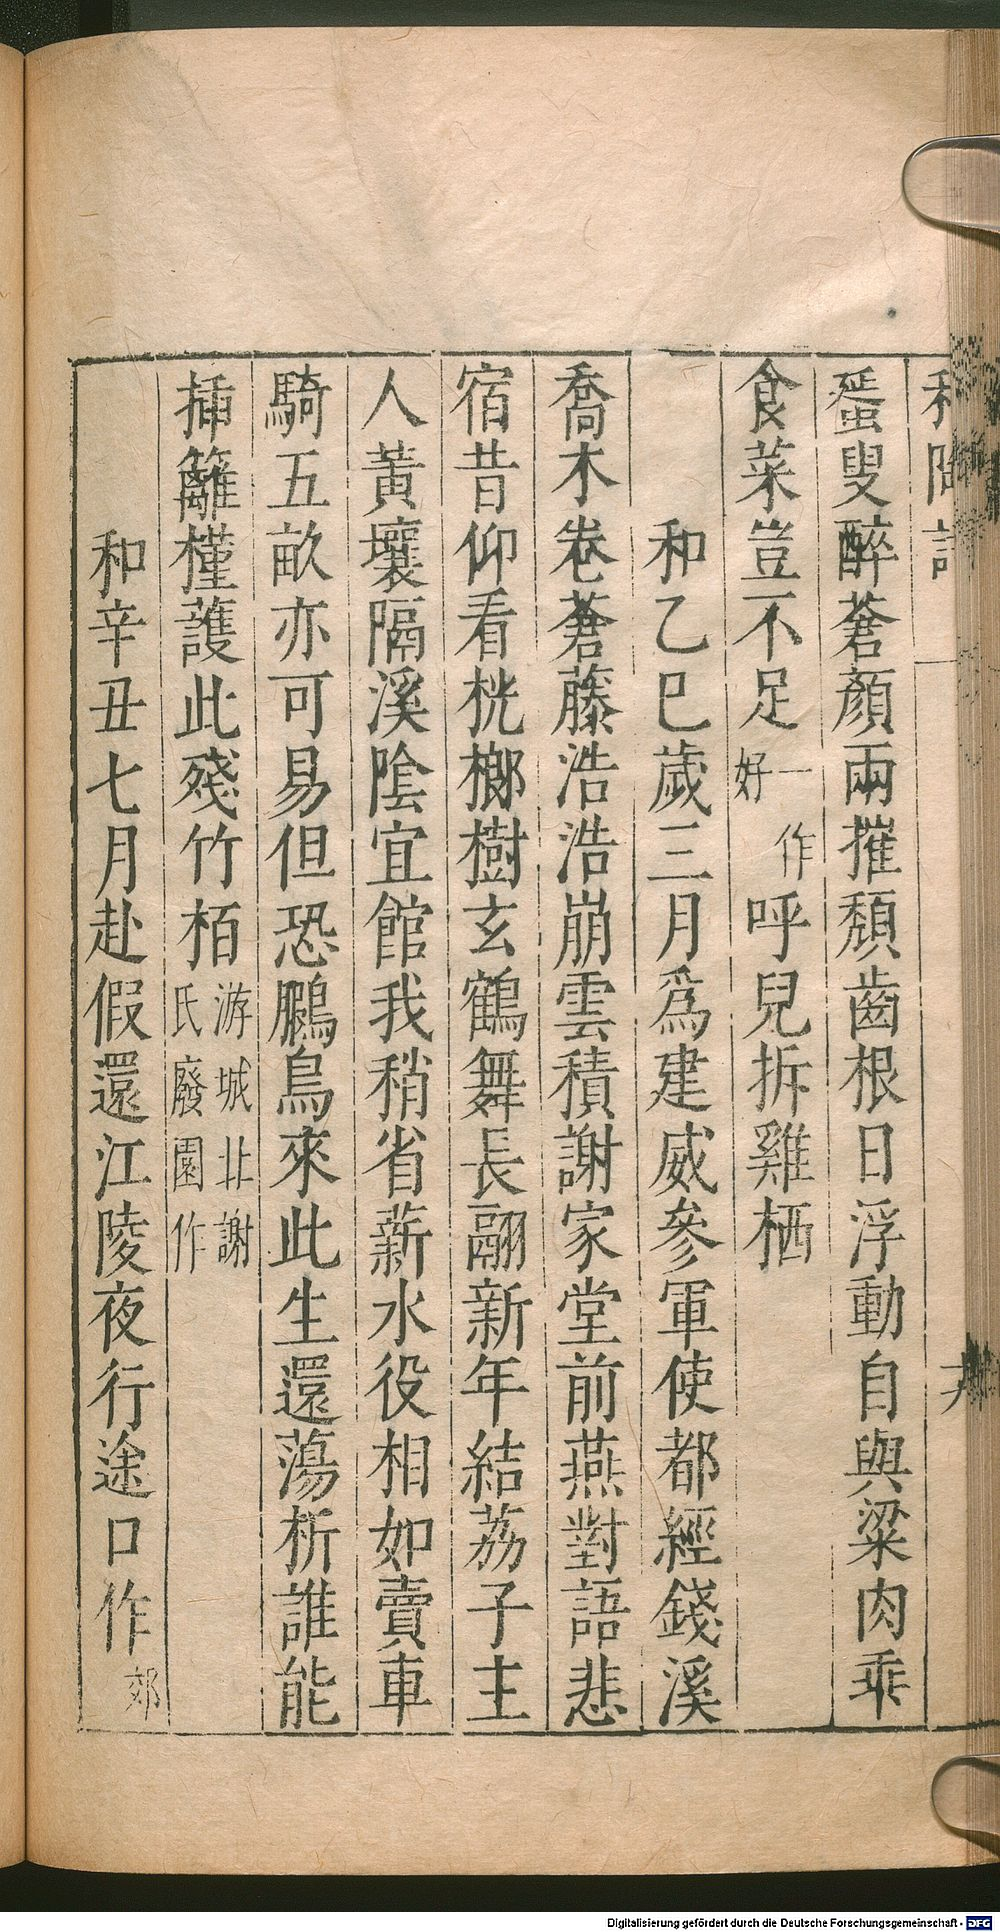 蜑叟醉蒼顏兩摧頹齒根日浮動自與粱肉乖
食菜豈不足一作好呼兒拆雞栖
和乙巳歲三月爲建威參軍使都經錢溪
喬木卷蒼藤浩浩崩雲積謝家堂前燕對語悲
宿昔仰看桄榔樹玄鶴舞長翮新年結荔子主
人黃壤隔溪陰宜館我稍省薪水役相如賣車
騎五畝亦可易但恐鵩鳥來此生還蕩析誰能
插籬槿護此殘竹栢游城北謝氏廢園作
和辛丑七月赴假還江陵夜行途口作郊
Digitalisierung gefördert durch die Deutsche Forschungsgemeinschaft - DFG